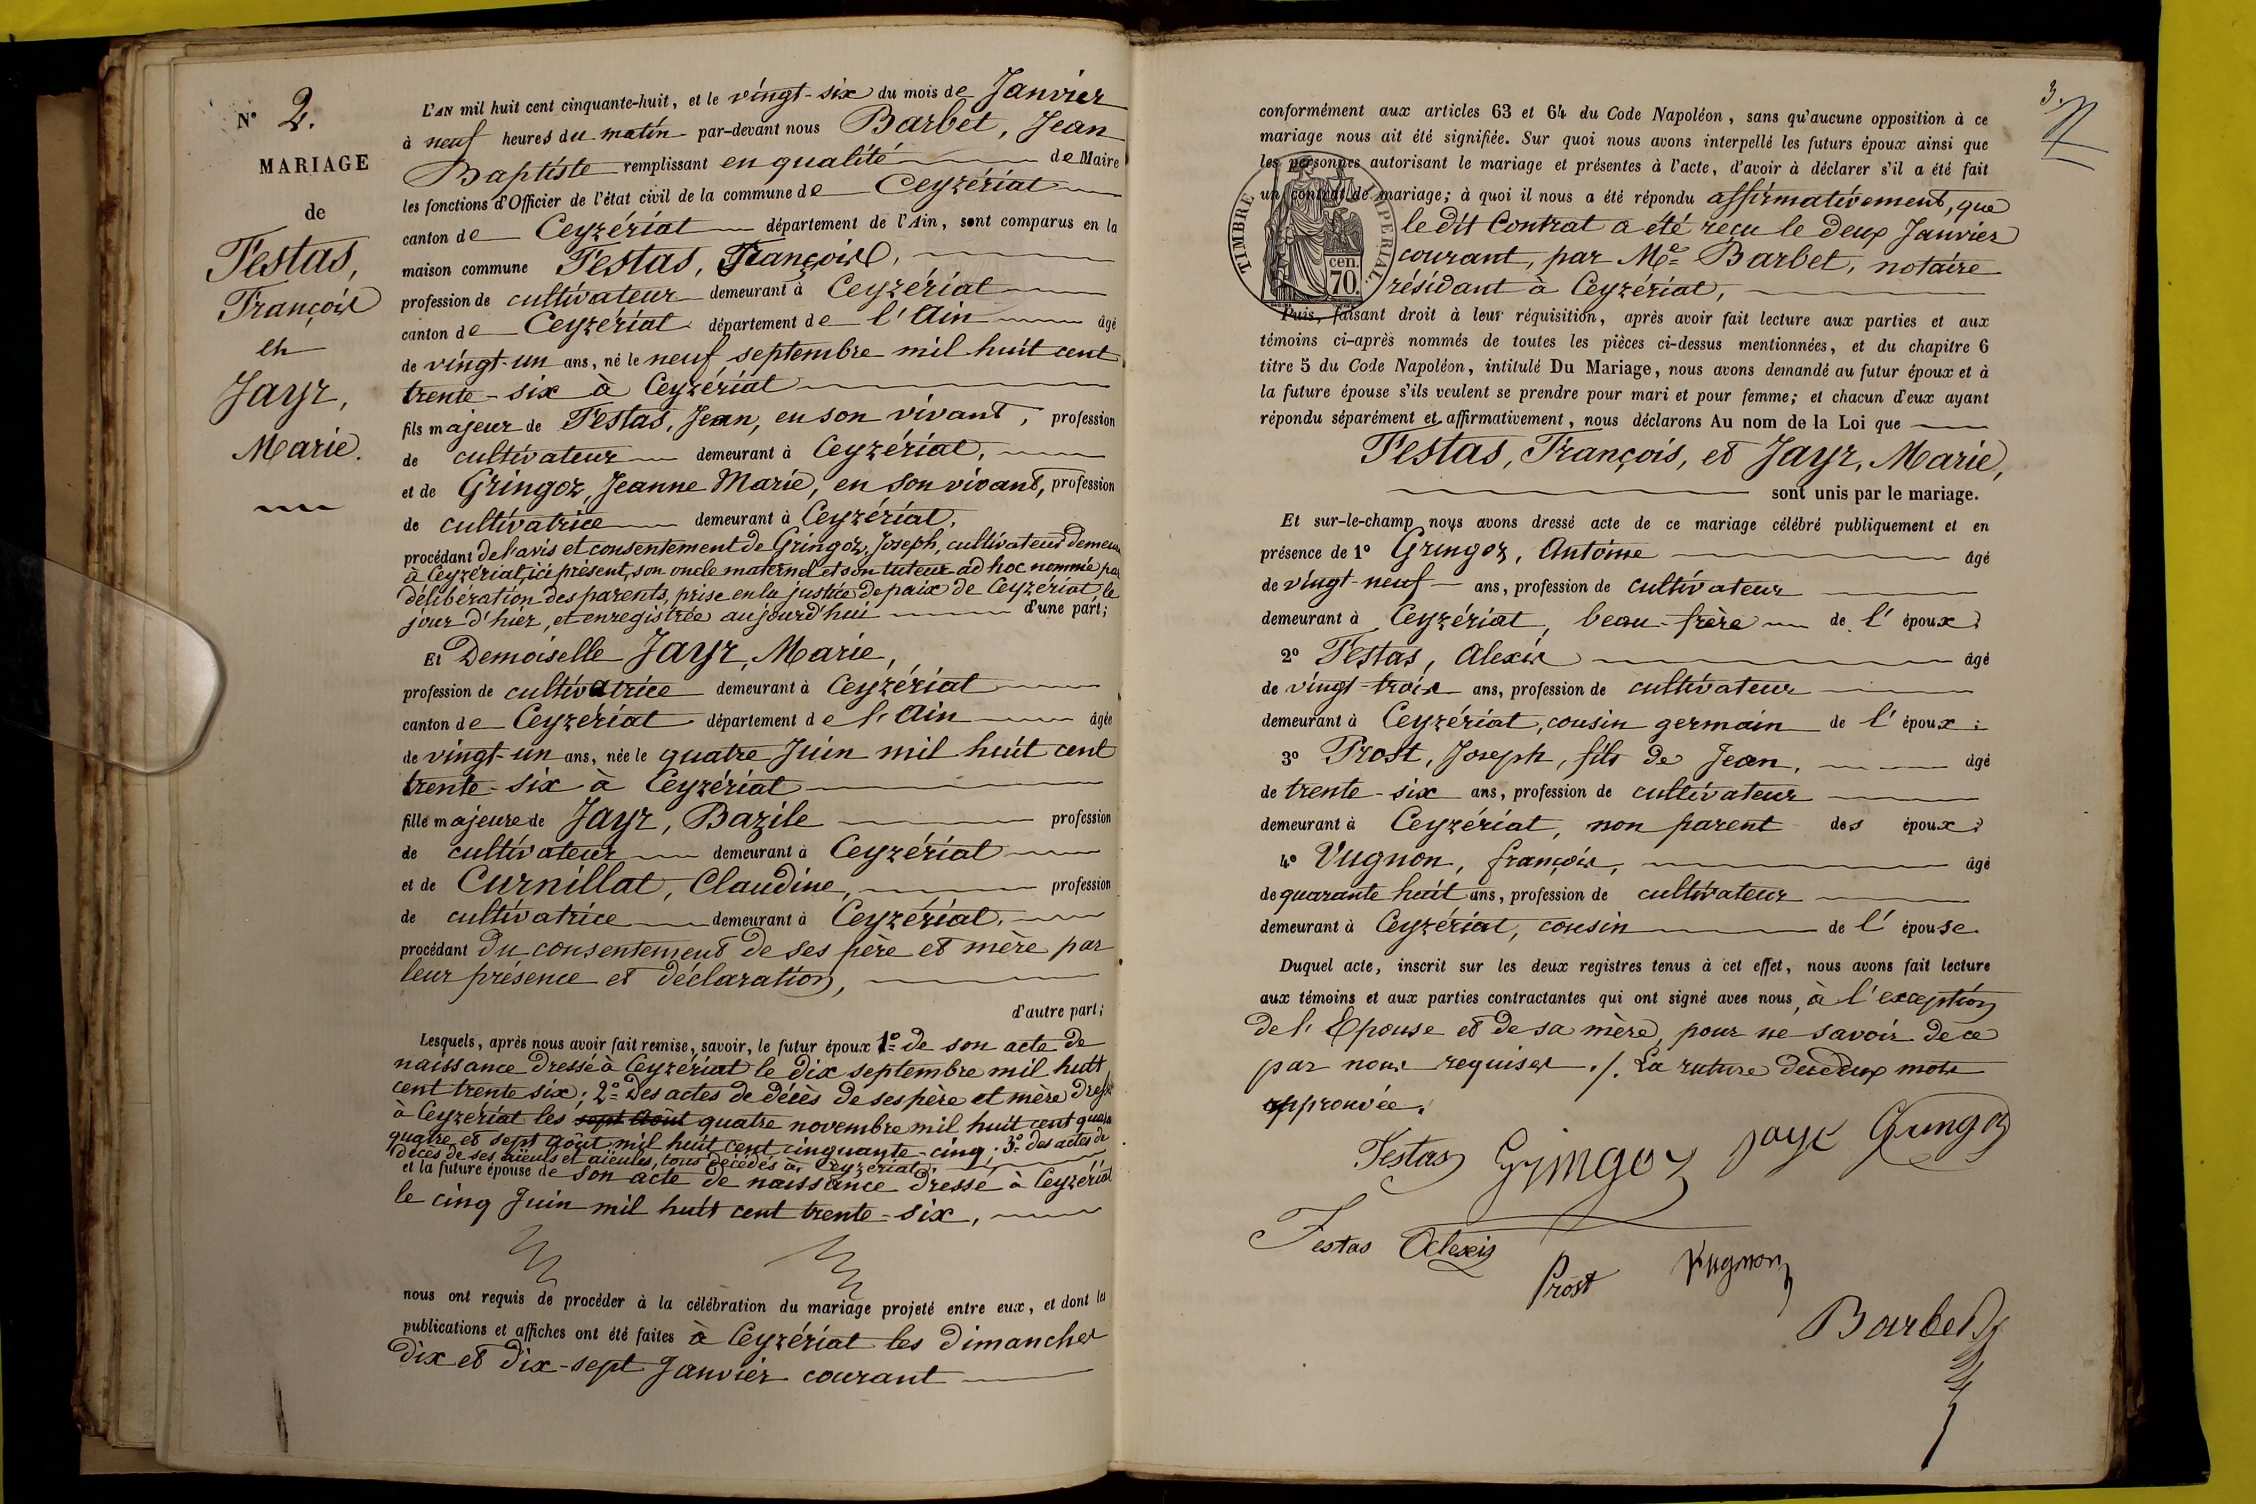 N° 2.
MARIAGE
de
Testas,
François
et
Jayr,
Marie.
L'AN mil huit cent cinquante-huit, et le vingt-six du mois de Janvier
à neuf heures du matin par-devant nous Barbet, Jean
Baptiste remplissant en qualité de Maire
les fonctions d'Officier de l'état civil de la commune de Ceyzériat
canton de Ceyzériat département de l'Ain, sont comparus en la
maison commune Testas, François,
profession de cultivateur demeurant à Ceyzériat
canton de Ceyzériat département de l'Ain âgé
de vingt-un ans, né le neuf septembre mil huit cent
trente-six à Ceyzériat
fils majeur de Testas, Jean, en son vivant, profession
de cultivateur demeurant à Ceyzériat,
et de Gringoz, Jeanne Marie, en son vivant, profession
de cultivatrice demeurant à Ceyzériat,
procédant de l'avis et consentement de Gringoz, Joseph, cultivateur demeu
à Ceyzériat, ici présent, son oncle maternel et son tuteur ad hoc nommé par
délibération des parents, prise en la justice de paix de Ceyzériat, le
jour d'hier, et enregistrée aujourd'hui d'une part;
Et Demoiselle Jayr, Marie,
profession de cultivatrice demeurant à Ceyzériat
canton de Ceyzériat département de l'Ain âgée
de vingt-un ans, née le quatre Juin mil huit cent
trente-six à Ceyzériat
fille majeure de Jayr, Bazile profession
de cultivateur demeurant à Ceyzériat
et de Curnillat, Claudine, profession
de cultivatrice demeurant à Ceyzériat,
procédant du consentement de ses père et mère par
leur présence et déclaration,
d'autre part;
Lesquels, après nous avoir fait remise, savoir, le futur époux 1° de son acte de
naissance dressé à Ceyzériat le dix septembre mil huit
cent trente six; 2° des actes de décès de ses père et mère dressés
à Ceyzériat les sept Août quatre novembre mil huit cent quara
quatre et sept août mil huit cent cinquante-cinq; 3° des actes de
décès de ses aïeuls et aïeules, tous décédés à Ceyzériat;
et la future épouse de son acte de naissance dressé à Ceyzériat
le cinq Juin mil huit cent trente-six,
nous ont requis de procéder à la célébration du mariage projeté entre eux, et dont les
publications et affiches ont été faites à Ceyzériat les dimanches
dix et dix-sept Janvier courant
3.
conformément aux articles 63 et 64 du Code Napoléon, sans qu'aucune opposition à ce
mariage nous ait été signifiée. Sur quoi nous avons interpellé les futurs époux ainsi que
les personnes autorisant le mariage et présentes à l'acte, d'avoir à déclarer s'il a été fait
un contrat de mariage; à quoi il nous a été répondu affirmativement, que
le dit Contrat a été reçu le deux Janvier
courant, par Me Barbet, notaire
résidant à Ceyzériat,
TIMBRE IMPERIAL
cen.
70.
Puis, faisant droit à leur réquisition, après avoir fait lecture aux parties et aux
témoins ci-après nommés de toutes les pièces ci-dessus mentionnées, et du chapitre 6
titre 5 du Code Napoléon, intitulé Du Mariage, nous avons demandé au futur époux et à
la future épouse s'ils veulent se prendre pour mari et pour femme; et chacun d'eux ayant
répondu séparément et affirmativement, nous déclarons Au nom de la Loi que
Testas, François, et Jayr, Marie,
sont unis par le mariage.
Et sur-le-champ nous avons dressé acte de ce mariage célébré publiquement et en
présence de 1° Gringoz, Antoine âgé
de vingt-neuf ans, profession de cultivateur
demeurant à Ceyzériat, beau-frère de l'époux;
2° Testas, Alexis âgé
de vingt-trois ans, profession de cultivateur
demeurant à Ceyzériat, cousin germain de l'époux;
3° Prost, Joseph, fils de Jean, âgé
de trente-six ans, profession de cultivateur
demeurant à Ceyzériat, non parent des époux;
4° Vugnon, françois, âgé
de quarante huit ans, profession de cultivateur
demeurant à Ceyzériat, cousin de l'épouse.
Duquel acte, inscrit sur les deux registres tenus à cet effet, nous avons fait lecture
aux témoins et aux parties contractantes qui ont signé avec nous, à l'exception
de l'Epouse et de sa mère, pour ne savoir de ce
par nous requises ./. La rature de deux mots
approuvée.
Testas Gringoz Jayr Gringoz
Testas Alexis
Prost Vugnon
Barbet